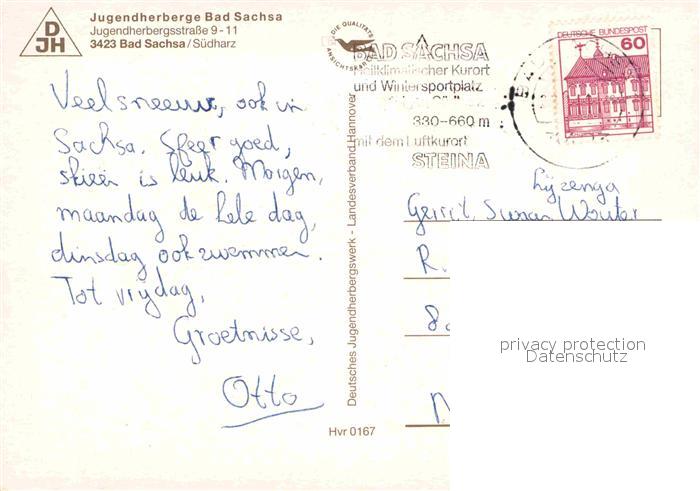 DJH
Jugendherberge Bad Sachsa
Jugendherbergsstraße 9-11
3423 Bad Sachsa/Südharz
DIE QUALITÄTS ANSICHTSKARTE
BAD SACHSA
Heilklimatischer Kurort
und Wintersportplatz
330-660 m
mit dem Luftkurort
STEINA
DEUTSCHE BUNDESPOST
60
Veel sneeuw, ook in
Sachsa. Sfeer goed,
skiën is leuk. Morgen,
maandag de hele dag,
dinsdag ook zwemmen.
Tot vrijdag,
Groetnisse,
Otto
Deutsches Jugendherbergswerk - Landesverband Hannover
Hvr 0167
Lijzenga
Gerrit, Susan Wouter
R.
80
N
privacy protection
Datenschutz